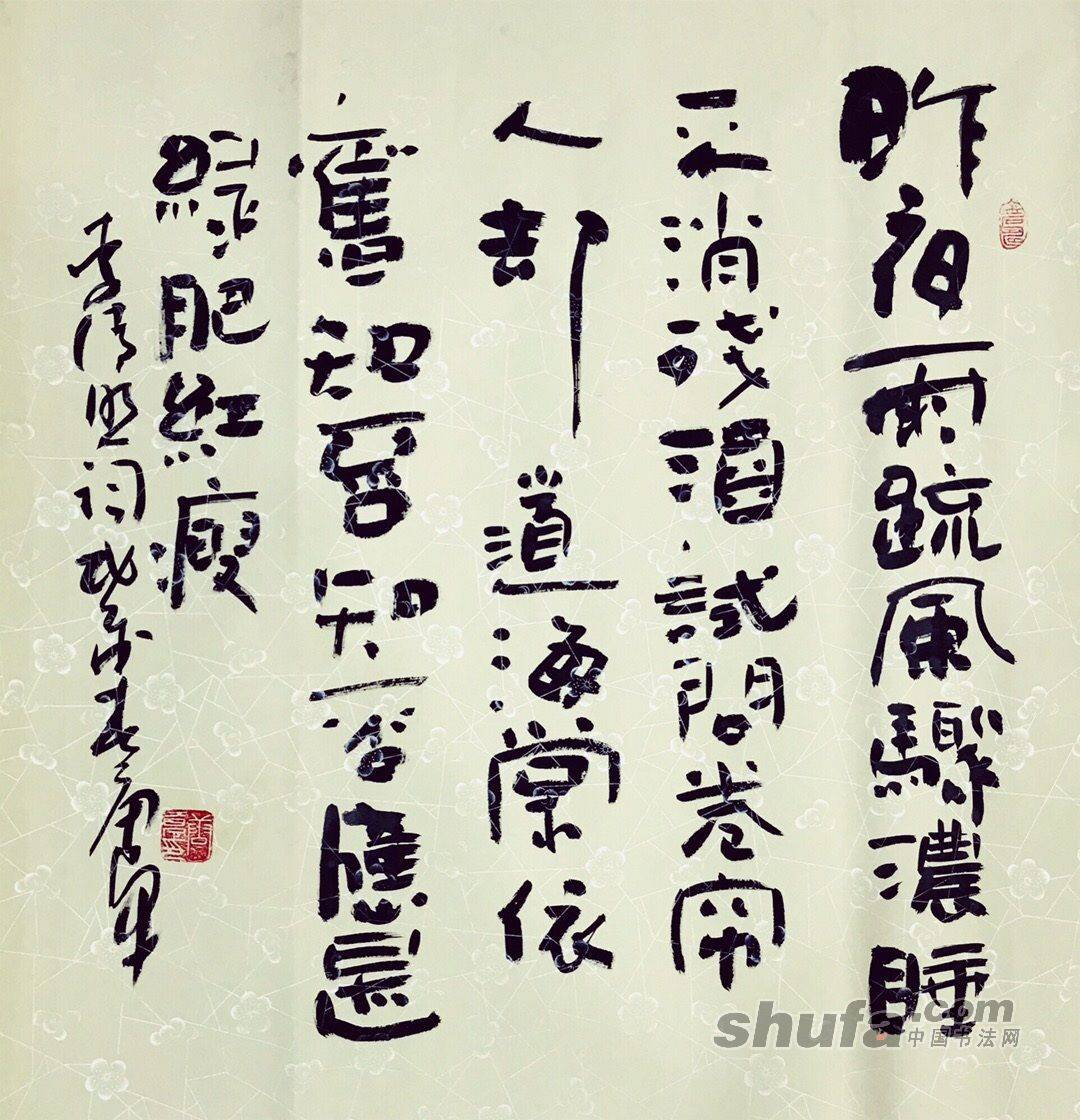 昨夜雨疏風驟濃睡
不消残酒試問卷帘
人却道海棠依
舊知否知否應是
綠肥紅瘦
李清照词
shufa.com
中国书法网